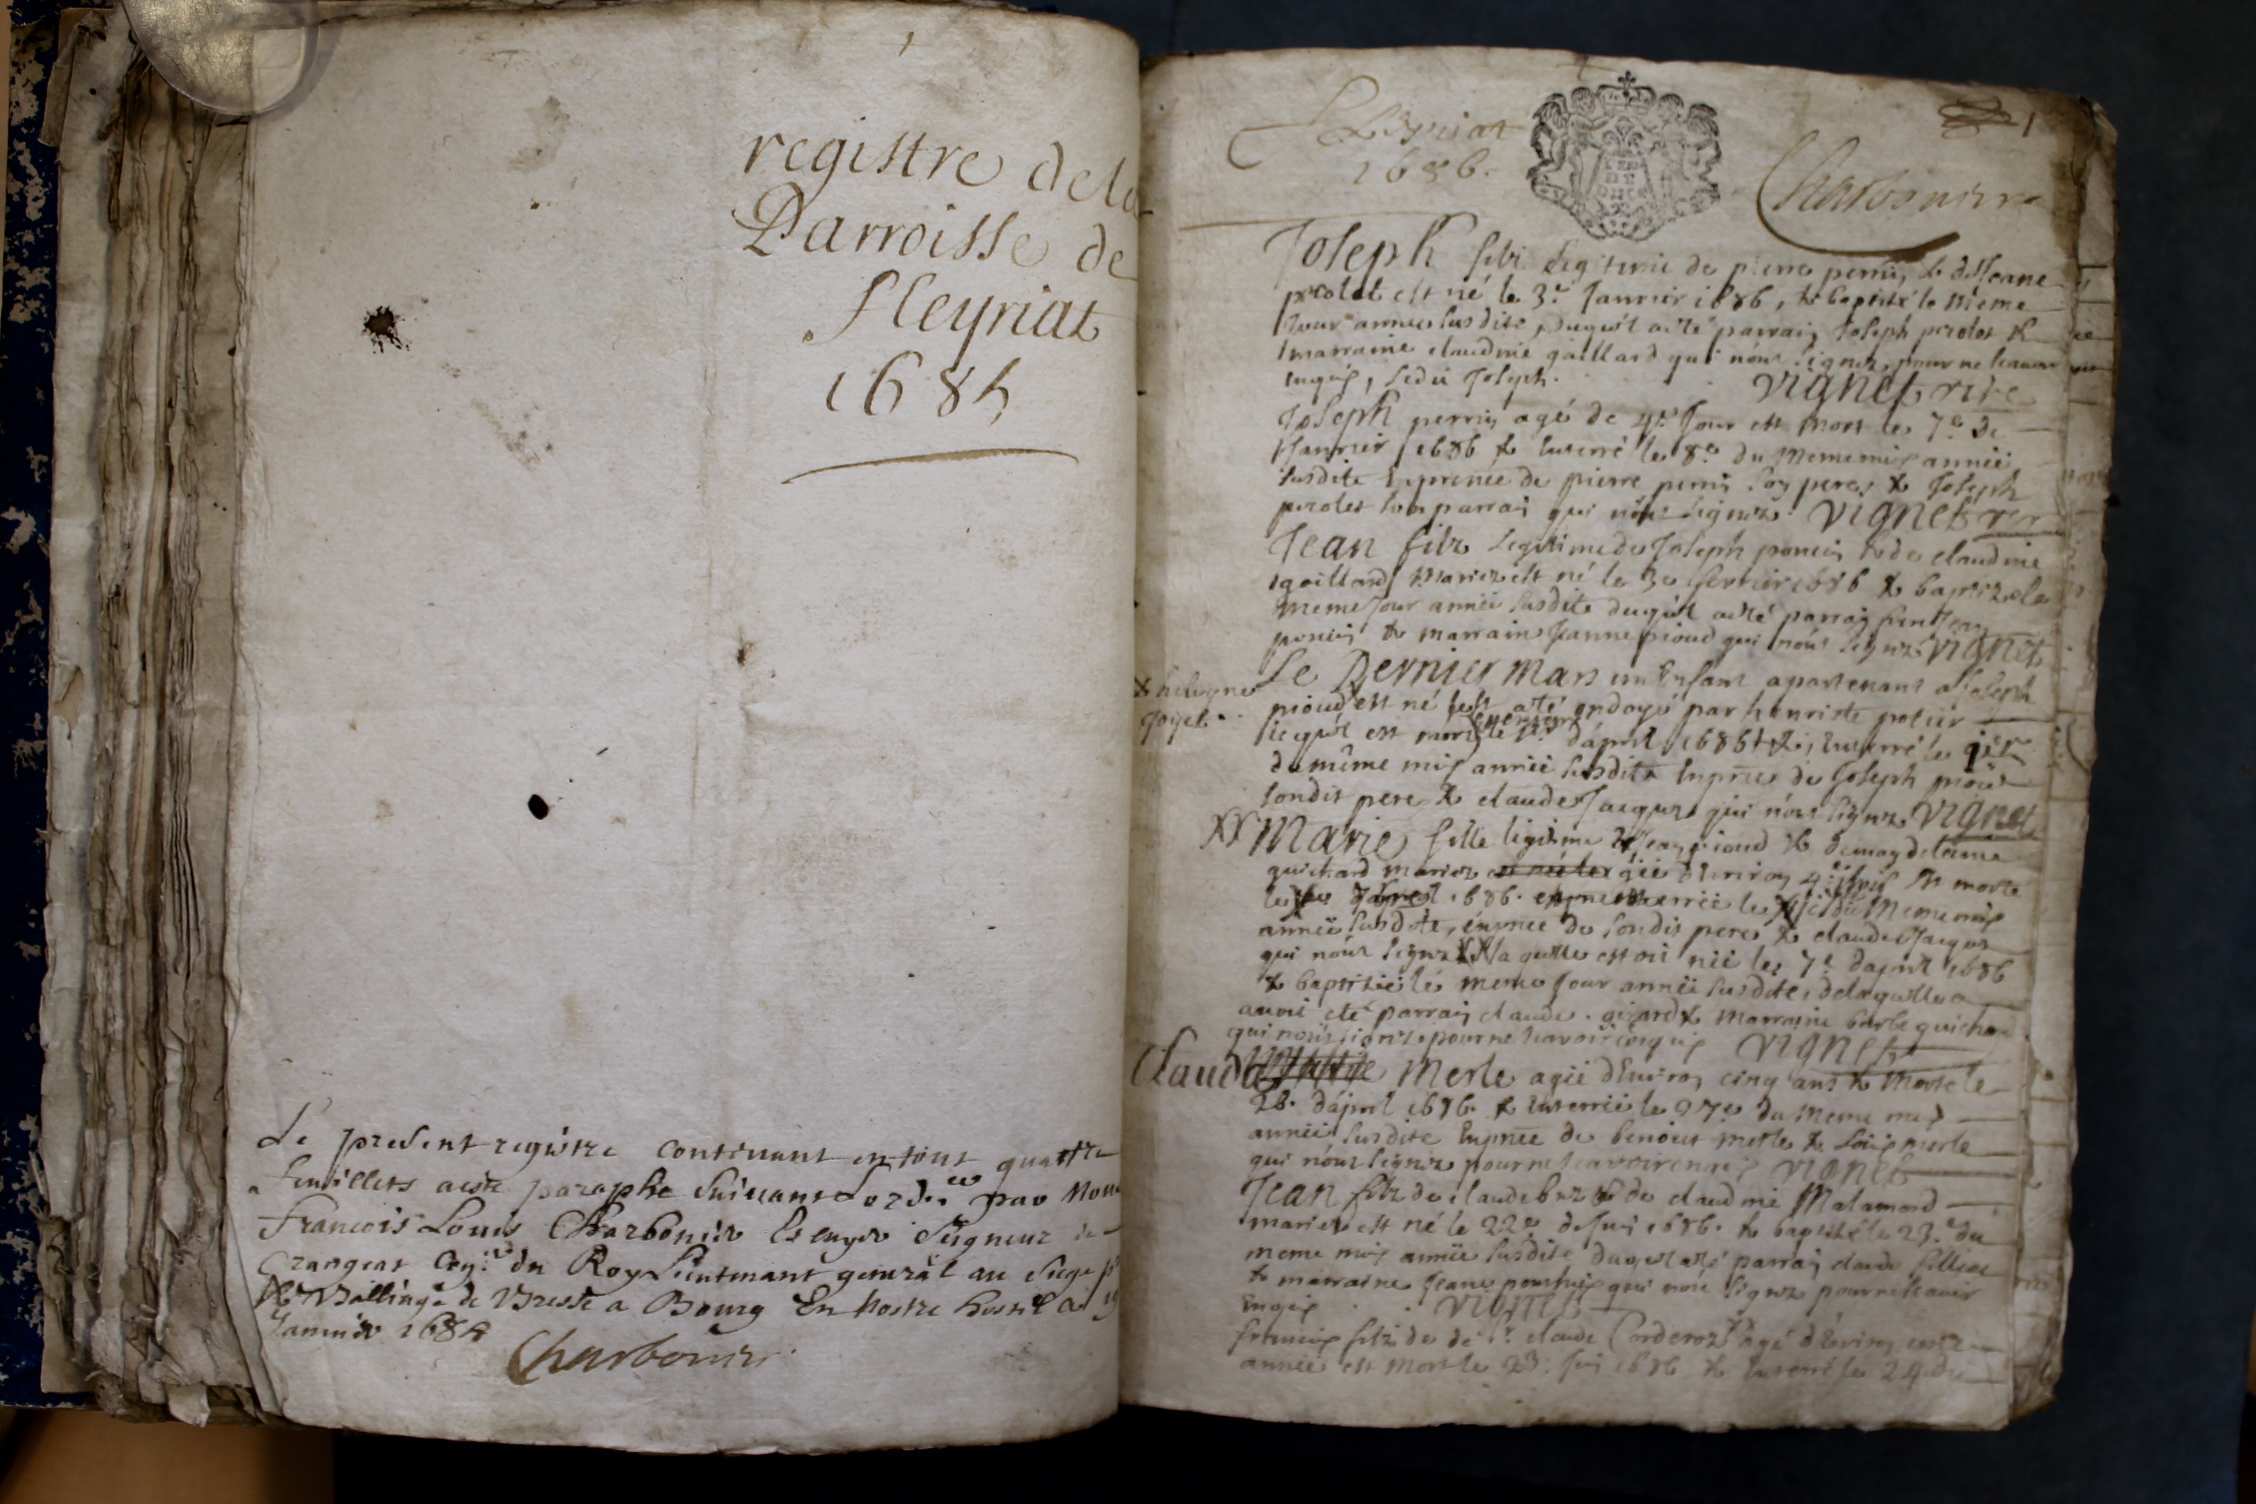 registre de la
Parroisse de
fleyriat
1685
Le present registre contenant en tout quattre
feuillets a este paraphe suivant l'ord.ce par Nous
Francois Louis Charbonier Escuyer Seigneur de
Crangeat Con.er du Roy Lieutenant general au Siege p
Bailliage de Bresse a Bourg En Nostre hostel
Janvier 168
Charbonier
1
fleyriat
1686.
Charbonier
Joseph filz legitime de pierre perrin, & de Jeane
perolet est né le 3.e Janvier 1686, & baptisé le meme
Jour annee susdite, duquel a eté parrain Joseph perolet &
marraine claudine gaillard qui n'ont signez, pour ne scavoir
enquis, ledit Joseph. Vignet
Joseph perrin agé de 4.e Jour est mort le 7.e de
Janvier 1686 & enterré le 8.e du meme mois année
susdite En presence de pierre perrin son pere, & Joseph
perolet son parrain qui n'ont signez. Vignet
Jean filz legitime de Joseph poncin & de claudine
gaillard mariez est né le 3e fevrier 1686 & baptizé le
meme Jour année susdite duquel a eté parrain Jean
poncin & marraine Jeanne pioud qui n'ont signez Vignet
Le Dernier Mars un Enfant apartenant a Joseph
pioud est né a eté ondoyé par henriete potier
lequel est mort le d'apvril 1686 & enterré le
du même mois année susdite En pnce de Joseph pioud
sondit pere & claude Jacquet qui n'ont signez Vignet
XX Marie fille legitime de Jean pioud &
guichard mariez agée d'Environ 4 est morte
le 1686. enterrée le du meme mois
année susdite, en pnce de sondit pere & claude Jacquet
qui n'ont signez XX laquelle estoit née le 7.e d'apvril 1686
& baptizée le meme Jour année susdite, de laquelle a
avoit eté parrain claude girard & marraine barbe guichard
qui n'ont signez pour ne scavoir enquis Vignet
Clauda Merle agée d'Environ cinq ans & morte le
26. d'apvril 1686. & enterrée le 27e du meme mois
année susdite En pnce de benoict merle & Louis merle
qui n'ont signez pour ne scavoir enquis Vignet
Jean filz de claude & de claudine Malamard
mariez est né le 22e de Juin 1686. & baptisé le 23.e du
meme mois année susdite duquel a eté parrain claude
& marraine Jeane qui n'ont signez pour ne scavoir
Enquis Vignet
francois filz de claude Corderoz agé d'Environ
année est mort le 23. Juin 1686 & enterré le 24 du